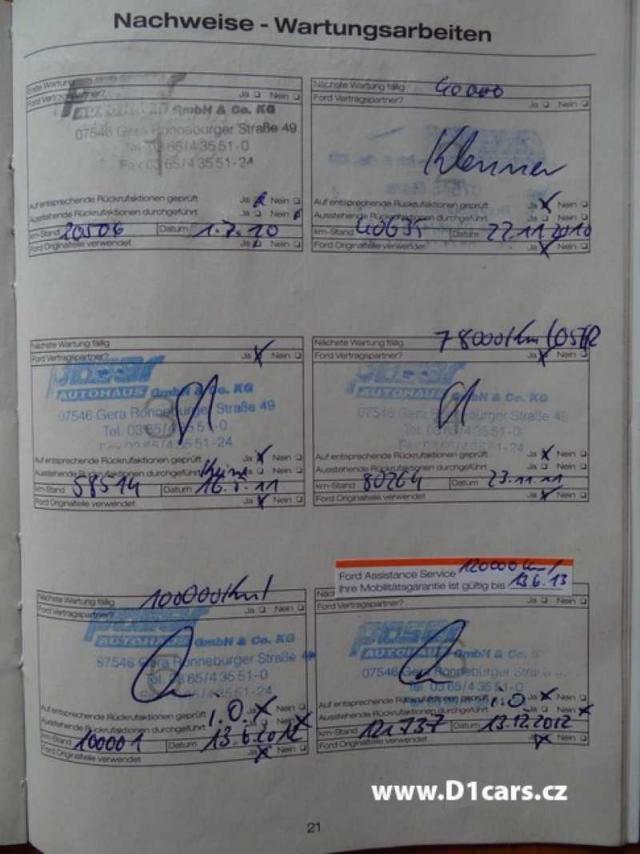 Nachweise - Wartungsarbeiten
Erste Wartung
Ford Vertragspartner? Ja Nein
GmbH & Co. KG
07546 Gera Ronneburger Straße 49
Tel. 03 65/4 35 51-0
Fax 03 65/4 35 51-24
Auf entsprechende Rückrufaktionen geprüft Ja Nein
Ausstehende Rückrufaktionen durchgeführt Ja Nein
km-Stand 20506 Datum 1.7.10
Ford Originalteile verwendet Ja Nein
Nächste Wartung fällig 40000
Ford Vertragspartner? Ja Nein
Auf entsprechende Rückrufaktionen geprüft Ja Nein
Ausstehende Rückrufaktionen durchgeführt Ja Nein
km-Stand 40635 Datum 22.11.2010
Ford Originalteile verwendet Ja Nein
Nächste Wartung fällig
Ford Vertragspartner? Ja Nein
AUTOHAUS GmbH & Co. KG
07546 Gera Ronneburger Straße 49
Tel. 03 65/4 35 51-0
Fax 03 65/4 35 51-24
Auf entsprechende Rückrufaktionen geprüft Ja Nein
Ausstehende Rückrufaktionen durchgeführt keine Ja Nein
km-Stand 58514 Datum
Ford Originalteile verwendet Ja Nein
Nächste Wartung fällig 78000km/05/12
Ford Vertragspartner? Ja Nein
AUTOHAUS GmbH & Co. KG
07546 Gera Ronneburger Straße 49
Tel. 03 65/4 35 51-0
Fax 03 65/4 35 51-24
Auf entsprechende Rückrufaktionen geprüft Ja Nein
Ausstehende Rückrufaktionen durchgeführt Ja Nein
km-Stand 80264 Datum 23.11.11
Ford Originalteile verwendet Ja Nein
Nächste Wartung fällig 100000km/
Ford Vertragspartner? Ja Nein
AUTOHAUS GmbH & Co. KG
07546 Gera Ronneburger Straße
Tel. 03 65/4 35 51-0
Fax 03 65/4 35 51-24
Auf entsprechende Rückrufaktionen geprüft i.O. Ja Nein
Ausstehende Rückrufaktionen durchgeführt Ja Nein
km-Stand 100001 Datum 13.6.2012
Ford Originalteile verwendet Ja Nein
Ford Assistance Service 120000km/
Ihre Mobilitätsgarantie ist gültig bis 13.6.13
Ford Vertragspartner? Ja Nein
AUTOHAUS GmbH & Co.
07546 Gera Ronneburger Straße
Tel. 03 65/4 35 51-0
Auf entsprechende Rückrufaktionen geprüft i.O. Ja Nein
Ausstehende Rückrufaktionen durchgeführt Ja Nein
km-Stand 121.737 Datum 13.12.2012
Ford Originalteile verwendet Ja Nein
www.D1cars.cz
21